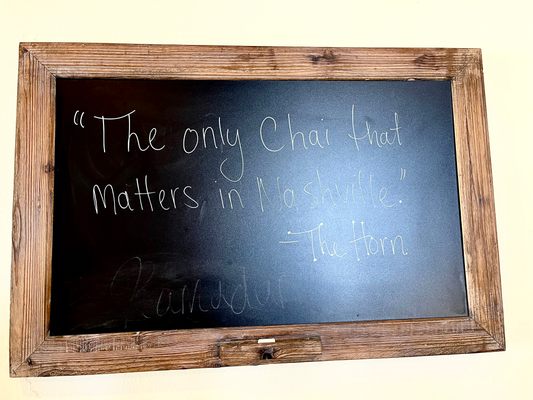 "The only Chai that
Matters in Nashville."
- The Horn